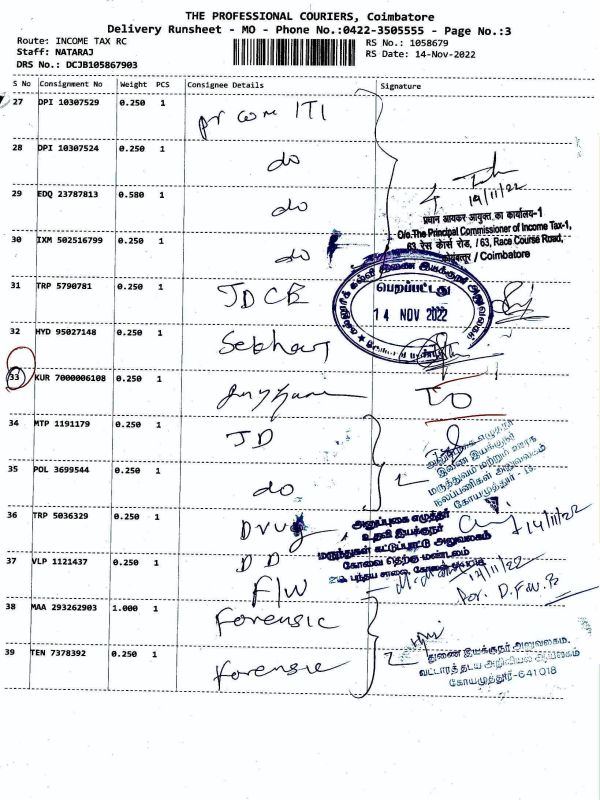 THE PROFESSIONAL COURIERS, Coimbatore
Delivery Runsheet - MO - Phone No.:0422-3505555 - Page No.:3
Route: INCOME TAX RC
RS No.: 1058679
Staff: NATARAJ
RS Date: 14-Nov-2022
DRS No.: DCJB105867903
S No Consignment No Weight PCS Consignee Details Signature
27 DPI 10307529 0.250 1 pr com ITI
28 DPI 10307524 0.250 1 do
19/11/22
29 EDQ 23787813 0.580 1 do
प्रधान आयकर आयुक्त का कार्यालय-1
O/o.The Principal Commissioner of Income Tax-1,
63 रेस कोर्स रोड, / 63, Race Course Road,
कोयंबत्तूर / Coimbatore
30 IXM 502516799 0.250 1 do
கல்லூரிக் கல்வி இணை இயக்குநர் அலுவலகம்
பெறப்பட்டது
31 TRP 5790781 0.250 1 JDCE
14 NOV 2022
32 HYD 95027148 0.250 1
33 KUR 7000006108 0.250 1
34 MTP 1191179 0.250 1 JD
இணை இயக்குநர்
மருத்துவம் மற்றும் ஊரக
நலப்பணிகள் அலுவலகம்
கோயமுத்தூர் - 18.
35 POL 3699544 0.250 1 do
36 TRP 5036329 0.250 1 Drug
அனுப்புகை எழுத்தர்
உதவி இயக்குநர்
மருந்துகள் கட்டுப்பாட்டு அலுவலகம்
கோவை தெற்கு மண்டலம்
14/11/22
37 VLP 1121437 0.250 1 DD
F/W
38 MAA 293262903 1.000 1 Forensic
துணை இயக்குநர் அலுவலகம்,
வட்டாரத் தடய அறிவியல் ஆய்வகம்
கோயமுத்தூர்-641018
39 TEN 7378392 0.250 1 Forensic